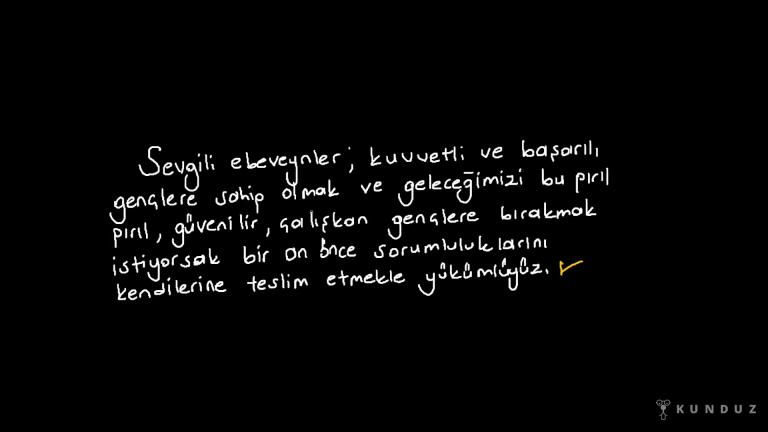 Sevgili ebeveynler; kuvvetli ve başarılı
gençlere sahip olmak ve geleceğimizi bu pırıl
pırıl, güvenilir, çalışkan gençlere bırakmak
istiyorsak bir an önce sorumluluklarını
kendilerine teslim etmekle yükümlüyüz.
KUNDUZ